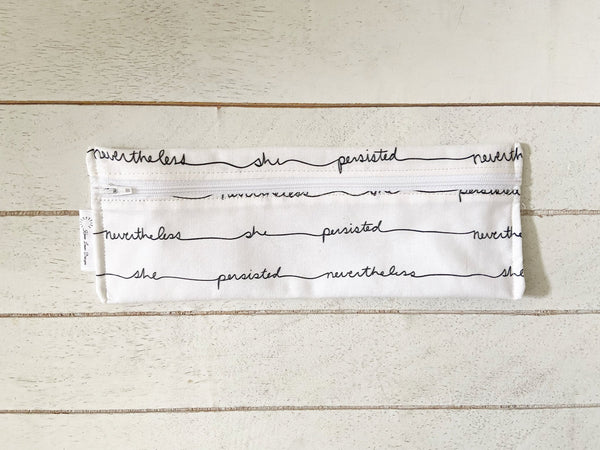 nevertheless she persisted neverth
nevertheless she persisted
nevertheless she persisted neverthe
she persisted nevertheless she